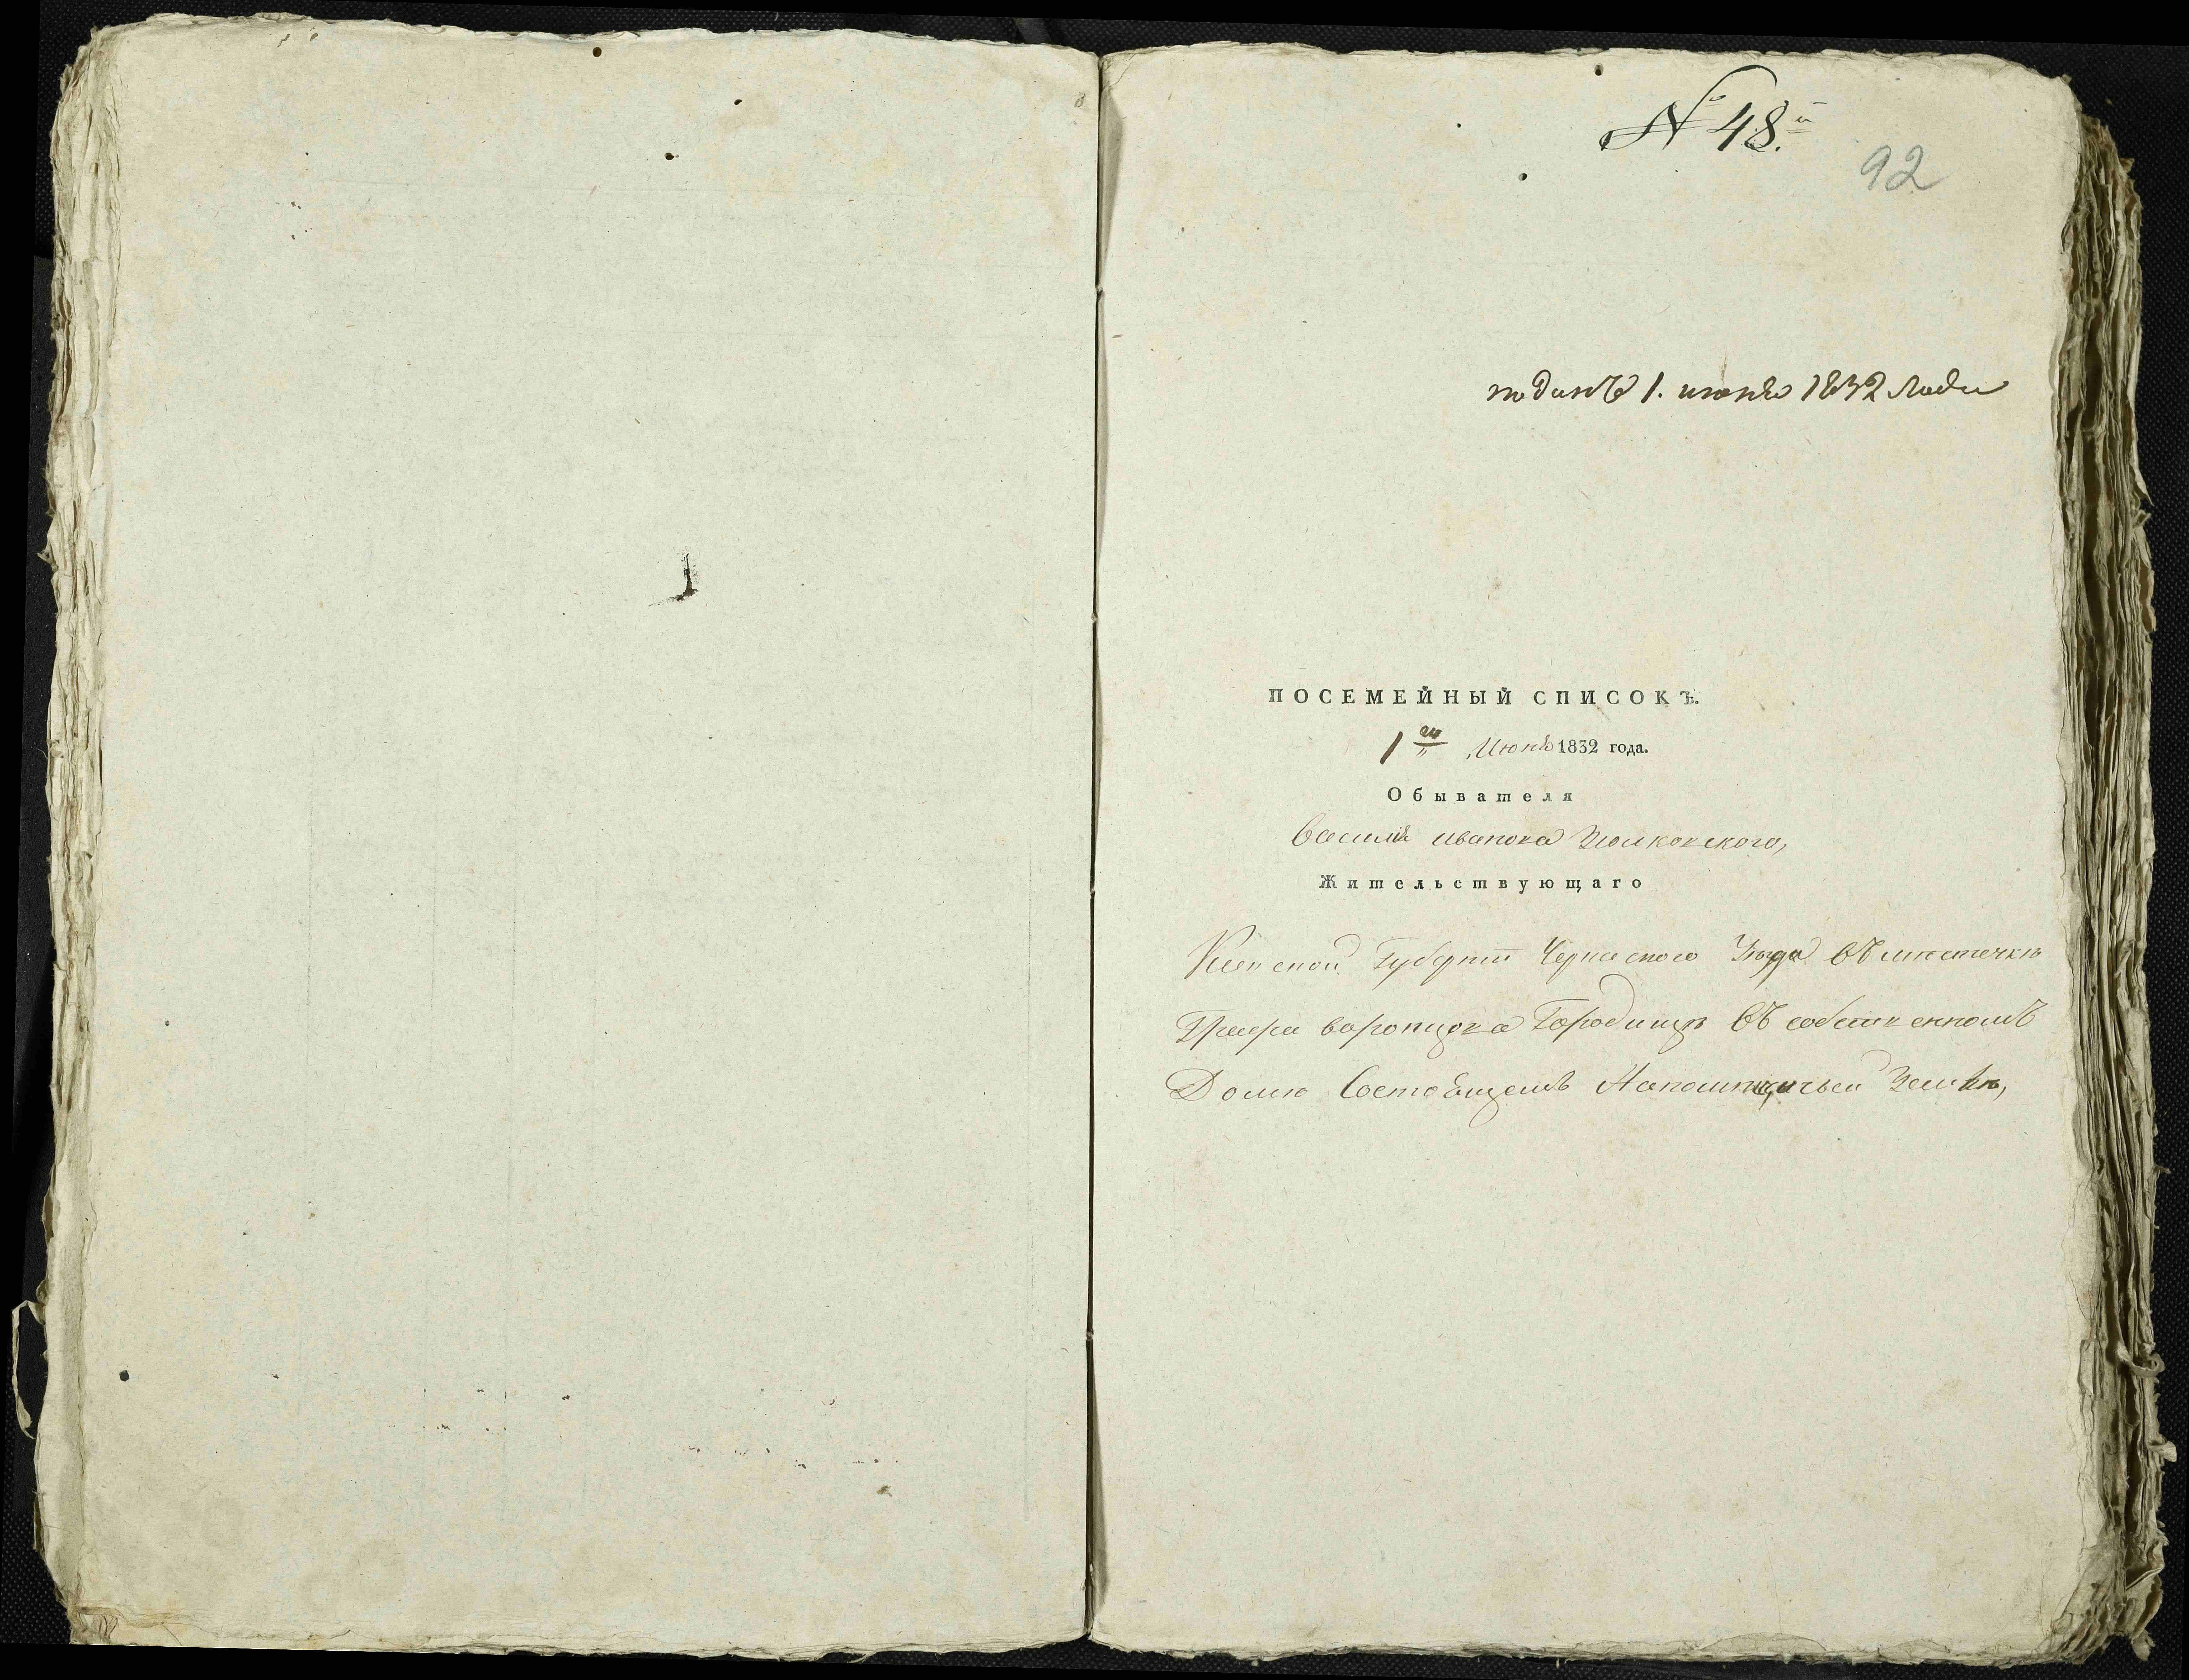 № 48.й
92
поданъ 1. июня 1832 года
ПОСЕМЕЙНЫЙ СПИСОКЪ.
1го Июня 1832 года.
Обывателя
Василия Иванова
Жительствующаго
Киевской Губернии Черкаского Уезда въ местечкѣ
Графа воронцова Городищѣ въ собственномъ
Доме Состоящемъ Напомещичьей Земле,